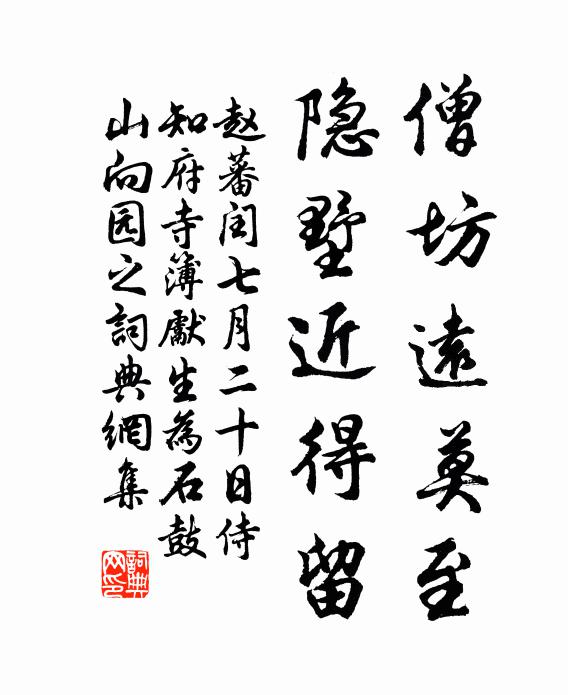 僧坊遠莫至
隐墅近得留
赵蕃闰七月二十日侍
知府寺簿獻生為石鼓
山向园之詞典網集
詞典
网印